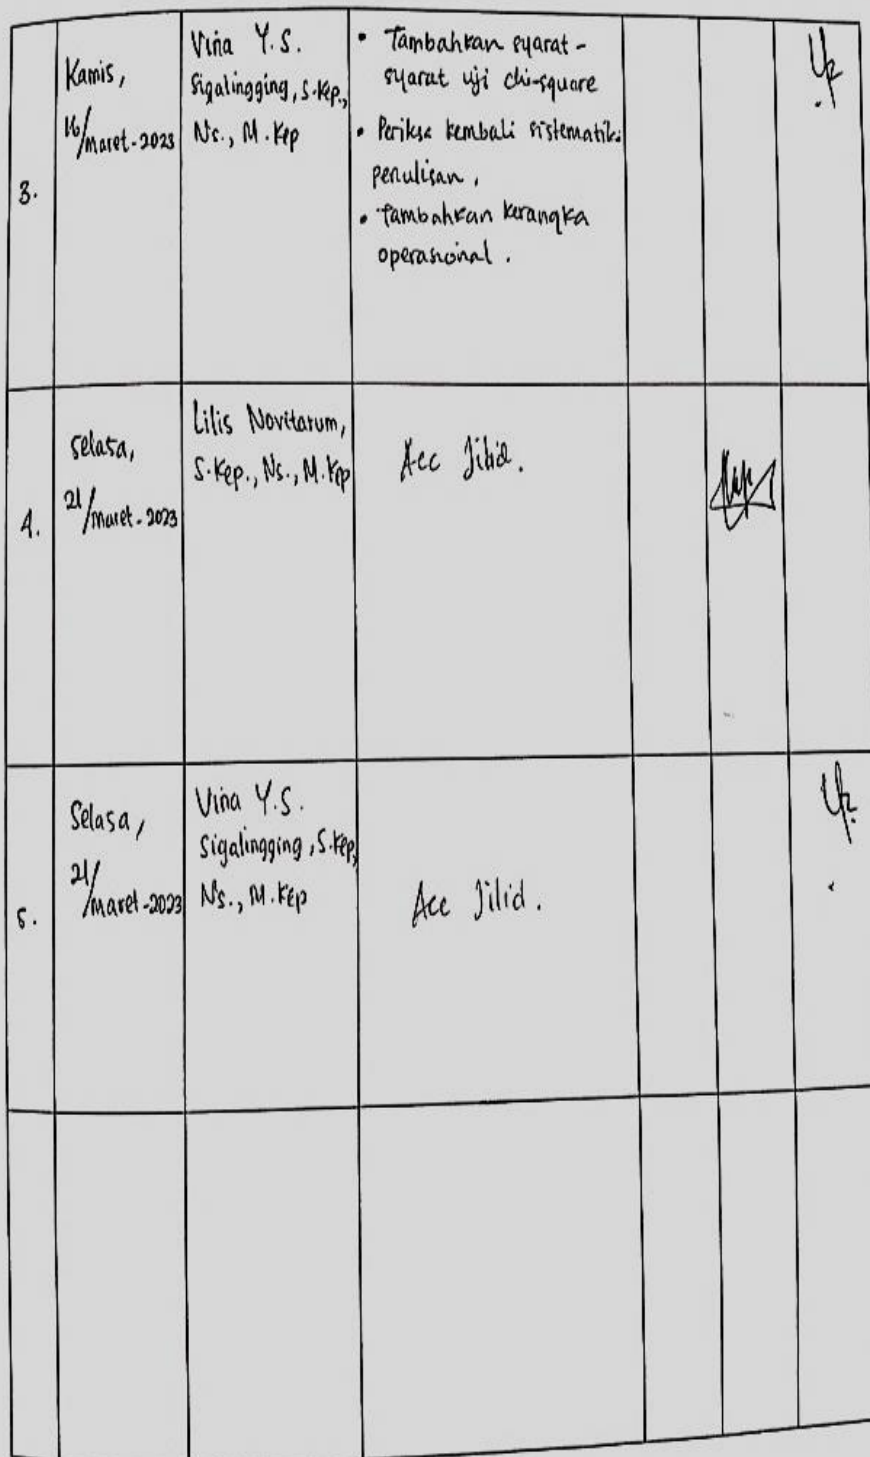 3.
Kamis,
16/maret-2023
Vina Y.S.
Sigalingging, S.Kep.,
Ns., M.Kep
• Tambahkan syarat-
syarat uji chi-square
• Periksa kembali sistematik
penulisan,
• Tambahkan kerangka
operasional.
4.
Selasa,
21/maret-2023
Lilis Novitarum,
S.Kep., Ns., M.Kep
Acc Jilid.
5.
Selasa,
21/maret-2023
Vina Y.S.
Sigalingging, S.Kep,
Ns., M.Kep
Acc Jilid.